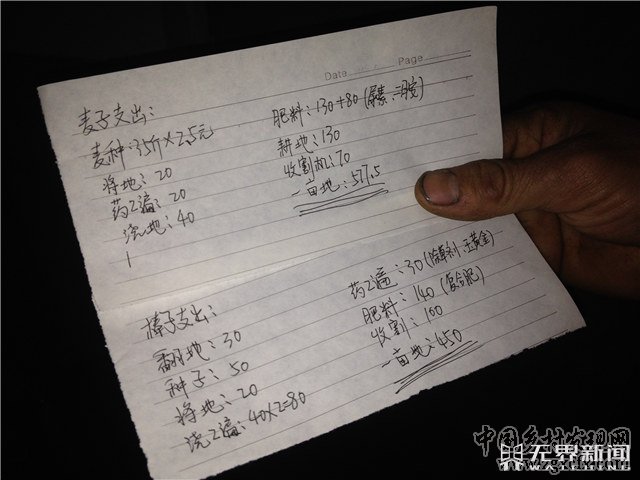 Date Page
麦子支出：
麦种：35斤×2.5元
将地：20
药2遍：20
浇地：40
肥料：130+80(尿素、二胺)
耕地：130
收割机：70
一亩地：577.5
棒子支出：
翻地：30
种子：50
将地：20
浇2遍：40×2=80
药2遍：30(除草剂、玉黄金)
肥料：140(复合肥)
收割：100
一亩地：450
中国乡村发现网
无界新闻